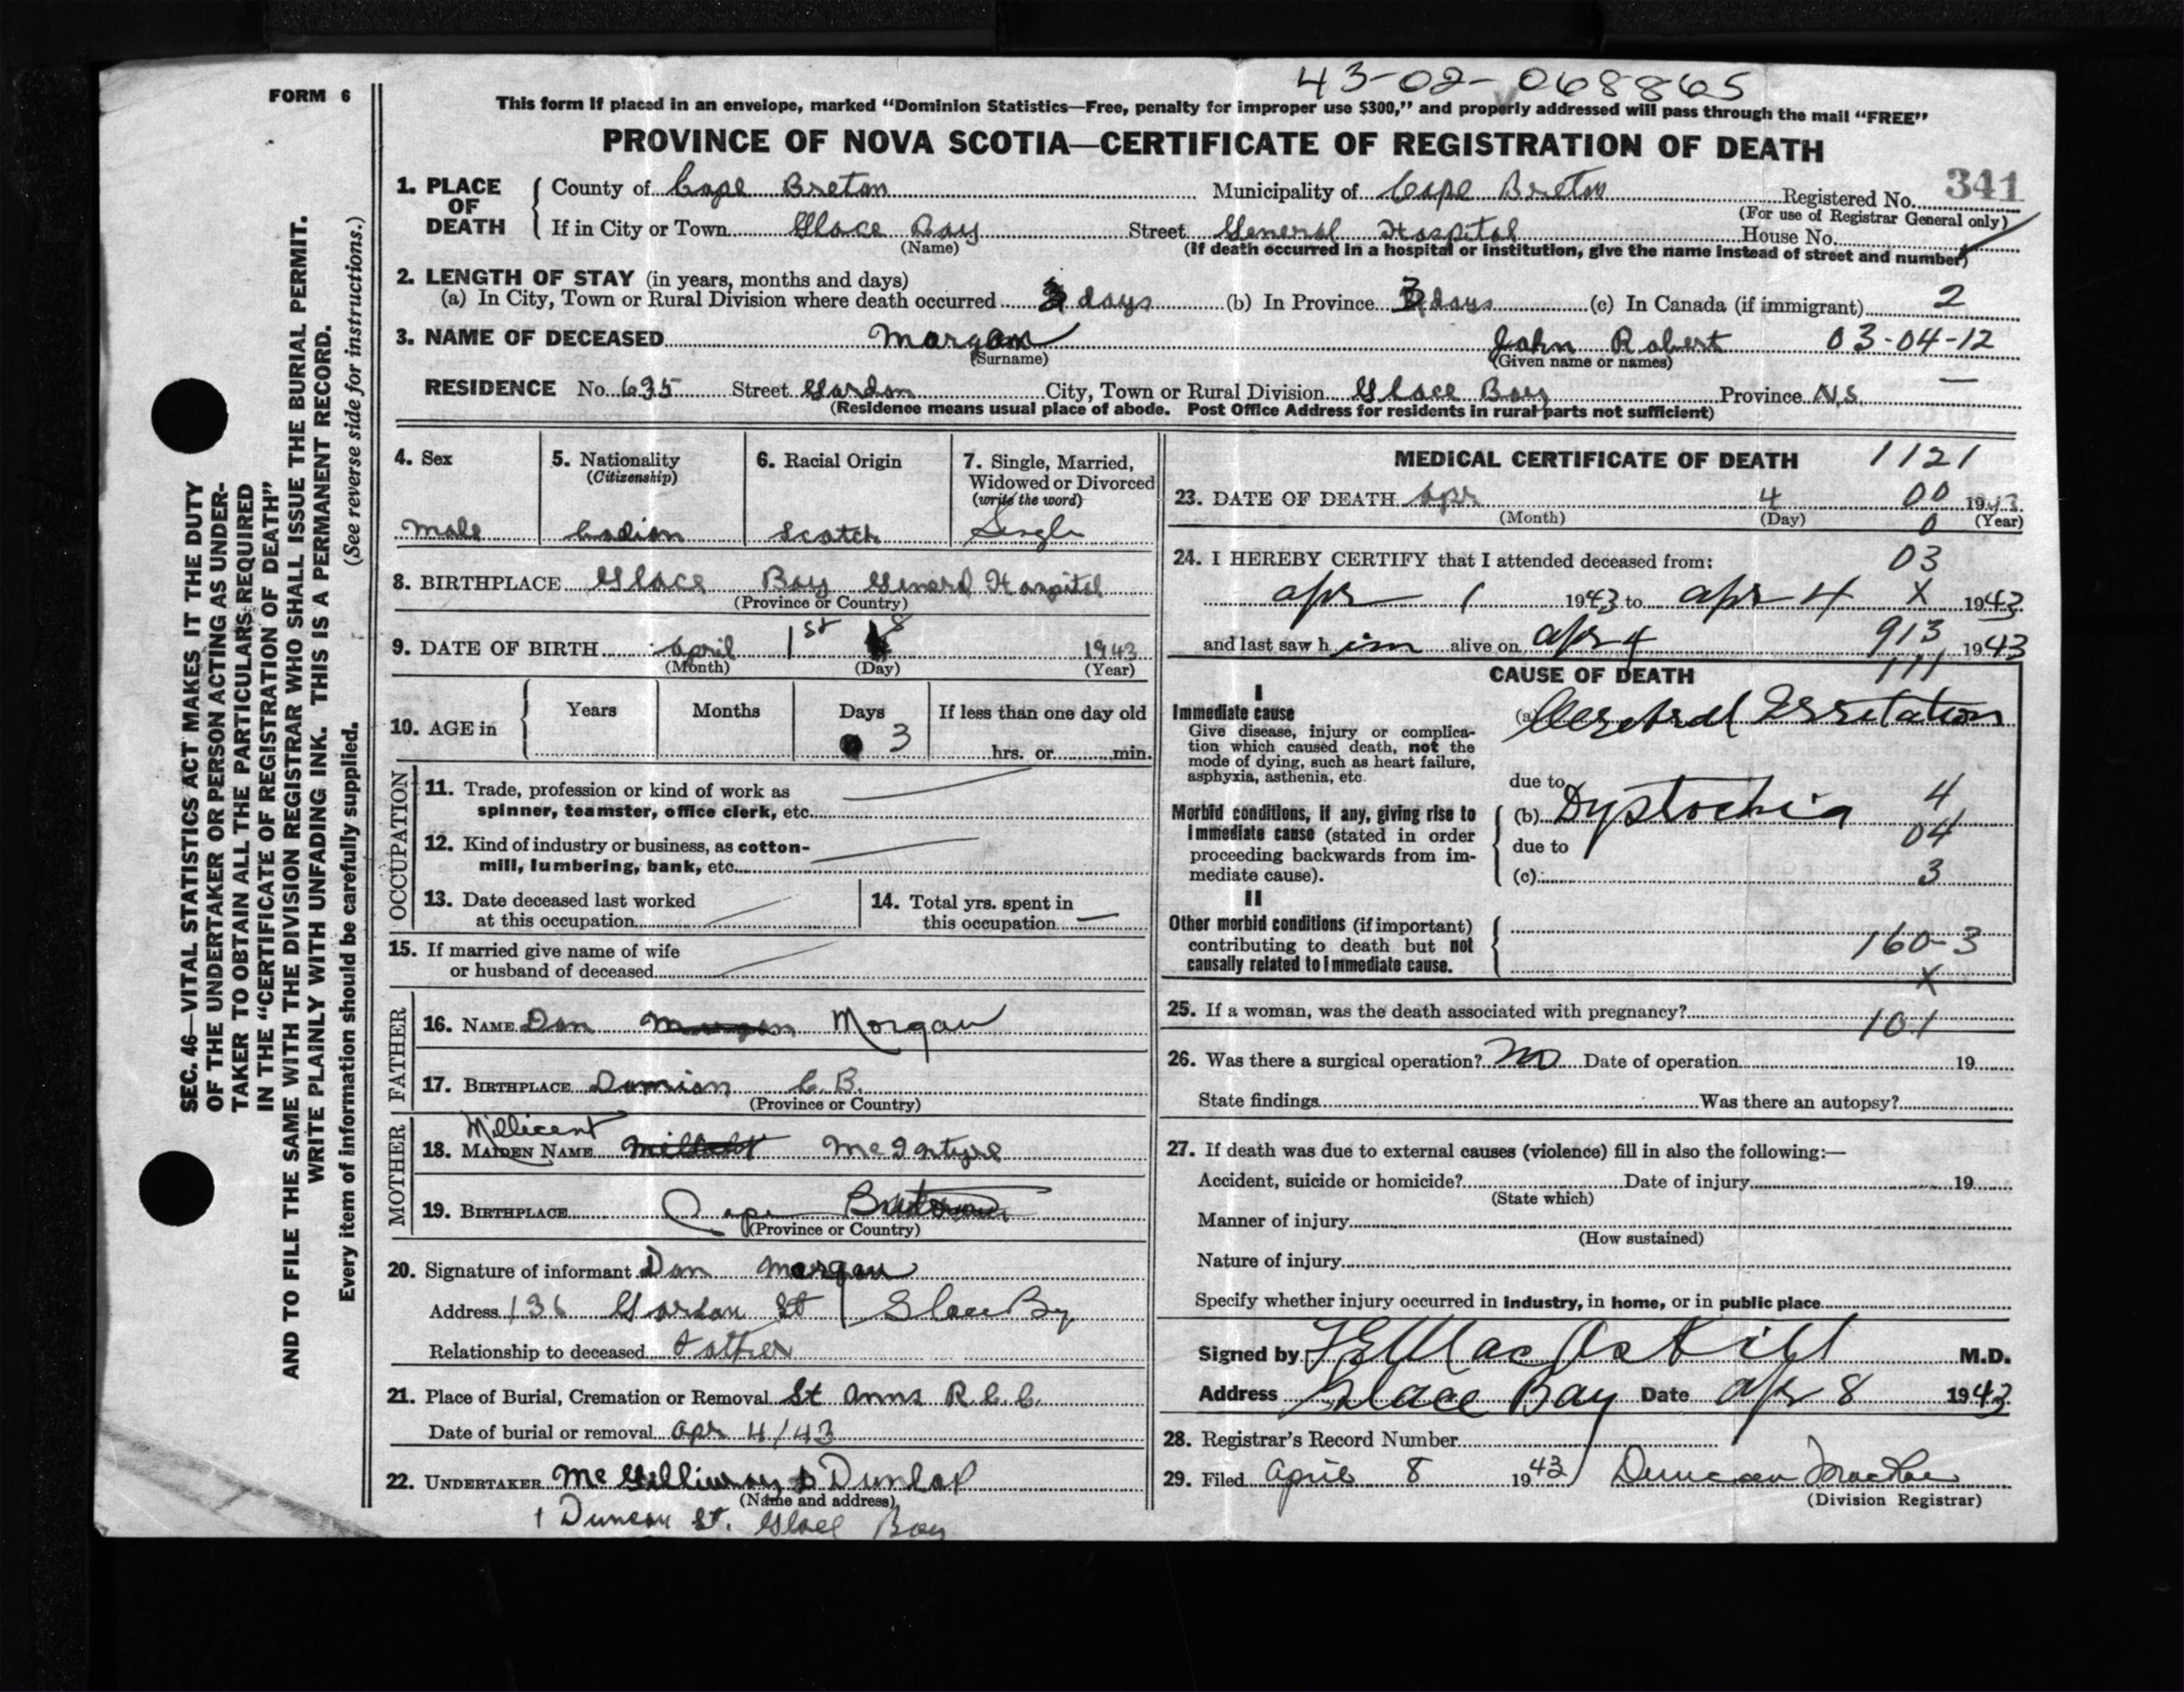 43-02-068865
FORM 6
This form if placed in an envelope, marked “Dominion Statistics—Free, penalty for improper use $300,” and properly addressed will pass through the mail “FREE”
PROVINCE OF NOVA SCOTIA—CERTIFICATE OF REGISTRATION OF DEATH
SEC. 46—VITAL STATISTICS ACT MAKES IT THE DUTY
OF THE UNDERTAKER OR PERSON ACTING AS UNDER-
TAKER TO OBTAIN ALL THE PARTICULARS REQUIRED
IN THE “CERTIFICATE OF REGISTRATION OF DEATH”
AND TO FILE THE SAME WITH THE DIVISION REGISTRAR WHO SHALL ISSUE THE BURIAL PERMIT.
WRITE PLAINLY WITH UNFADING INK. THIS IS A PERMANENT RECORD.
Every item of information should be carefully supplied. (See reverse side for instructions.)
1. PLACE OF DEATH County of Cape Breton Municipality of Cape Breton Registered No. 341
(For use of Registrar General only)
If in City or Town Glace Bay Street General Hospital House No.
(Name) (If death occurred in a hospital or institution, give the name instead of street and number)
2. LENGTH OF STAY (in years, months and days)
(a) In City, Town or Rural Division where death occurred 3 days (b) In Province 3 days (c) In Canada (if immigrant) 2
3. NAME OF DECEASED Morgan John Robert 03-04-12
(Surname) (Given name or names)
RESIDENCE No. 635 Street Gordon City, Town or Rural Division Glace Bay Province N.S.
(Residence means usual place of abode. Post Office Address for residents in rural parts not sufficient)
4. Sex 5. Nationality 6. Racial Origin 7. Single, Married,
(Citizenship) Widowed or Divorced
(write the word)
Male Cadian Scotch Single
8. BIRTHPLACE Glace Bay General Hospital
(Province or Country)
9. DATE OF BIRTH April 1st 1943
(Month) (Day) (Year)
10. AGE in Years Months Days If less than one day old
3 hrs. or min.
OCCUPATION
11. Trade, profession or kind of work as
spinner, teamster, office clerk, etc.
12. Kind of industry or business, as cotton-
mill, lumbering, bank, etc.
13. Date deceased last worked 14. Total yrs. spent in
at this occupation this occupation
15. If married give name of wife
or husband of deceased
FATHER
16. NAME Dan Morgan
17. BIRTHPLACE Domion C.B.
(Province or Country)
MOTHER
Millicent
18. MAIDEN NAME McIntyre
19. BIRTHPLACE Cape Breton
(Province or Country)
20. Signature of informant Dan Morgan
Address 136 Gordon St Glace Bay
Relationship to deceased Father
21. Place of Burial, Cremation or Removal St Anns R.C.C.
Date of burial or removal Apr 4/43
22. UNDERTAKER McGillivray & Dunlap
(Name and address)
1 Duncan St. Glace Bay
MEDICAL CERTIFICATE OF DEATH 1121
23. DATE OF DEATH Apr 4 00 1943
(Month) (Day) 0 (Year)
24. I HEREBY CERTIFY that I attended deceased from: 03
Apr 1 1943 to Apr 4 X 1943
and last saw him alive on Apr 4 913 1943
111
CAUSE OF DEATH
I
Immediate cause (a) Cerebral Irritation
Give disease, injury or complica-
tion which caused death, not the
mode of dying, such as heart failure,
asphyxia, asthenia, etc.
due to 4
Morbid conditions, if any, giving rise to (b) Dystochia
immediate cause (stated in order 04
proceeding backwards from im- due to
mediate cause). (c) 3
II
Other morbid conditions (if important)
contributing to death but not 160-3
causally related to immediate cause. X
25. If a woman, was the death associated with pregnancy? 101
26. Was there a surgical operation? No Date of operation 19
State findings Was there an autopsy?
27. If death was due to external causes (violence) fill in also the following:—
Accident, suicide or homicide? Date of injury 19
(State which)
Manner of injury
(How sustained)
Nature of injury
Specify whether injury occurred in industry, in home, or in public place
Signed by MacAskill M.D.
Address Glace Bay Date Apr 8 1943
28. Registrar's Record Number
29. Filed April 8 1943 Duncan MacRae
(Division Registrar)